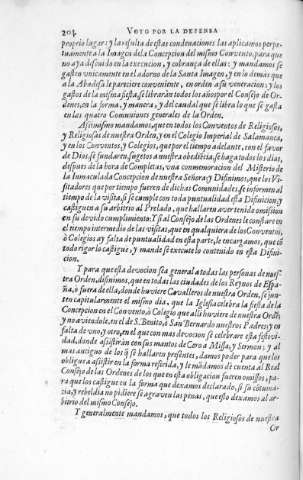 204 VOTO POR LA DEFENSA
proprio lugar: y la resulta de estas condenaciones las aplicamos perpe-
tuamente a la Imagen dela Concepcion del mismo Convento, para que
no aya descuido en la execucion, y cobrança de ellas: y mandamos se
gasten unicamente en el adorno de la Santa Imagen, y en lo demàs que
a la Abadesa le pareciere conveniente, en orden a su veneracion: y los
gastos de la misma fiesta, se libraràn todos los años por el Consejo de Or-
denes, en la forma, y manera, y del caudal que se libra lo que se gasta
en las quatro Comuniones generales de la Orden.
Assimismo mandamos, que en todos los Conventos de Religiosos,
y Religiosas de nuestra Orden, y en el Colegio Imperial de Salamanca,
y en los Conventos, y Colegios, que por el tiempo adelante, con el favor
de Dios, se fundaren sugetos a nuestra obediẽcia, se haga todos los dias,
despues de la hora de Completas, una commemoracion del Misterio de
la Inmaculada Concepcion de nuestra Señora; y Difinimos, que los Vi-
sitadores que por tiempo fueren de dichas Comunidades, se informen al
tiempo de la visita, si se cumple con toda puntualidad esta Difinicion, y
castiguen a su arbitrio al Prelado, que hallaren aver tenido omission
en su devido cumplimiento: Y si al Consejo de las Ordenes le constare en
el tiempo intermedio de las visitas, que en qualquiera de los Conventos,
ò Colegios ay falta de puntualidad en esta parte, le encargamos, que cõ
todo rigor lo castigue, y mande se execute lo contenido en esta Difini-
cion.
Y para que esta devocion sea general a todas las personas de nues-
tra Orden, difinimos, que en todas las ciudades de los Reynos de Espa-
ña, ò fuera de ella, donde huviere Cavalleros de nuestra Orden, se jun-
ten capitularmente el mismo dia, que la Iglesia celebra la fiesta de la
Concepcion en el Convento, ò Colegio que alli huviere de nuestra Ordẽ;
y no aviendole, en el de S. Benito, ò San Bernardo nuestros Padres; y en
falta de uno, y otro, en el que con mas devocion se celebrare esta festivi-
dad, donde assistiràn con sus mantos de Coro a Missa, y Sermon; y al
mas antiguo de los q̃ se hallaren presentes, damos poder para que los
obligue a assistir en la forma referida, y le mãdamos dè cuenta al Real
Consejo de las Ordenes de los que en esta obligacion fueren omissos, pa-
ra que los castigue en la forma que dexamos declarado, si su cõtuma-
cia, y rebeldia no pidiere se agraven las penas, que esto dexamos al ar-
bitrio del mismo Consejo.
Y generalmente mandamos, que todos los Religiosos de nuestra
Or